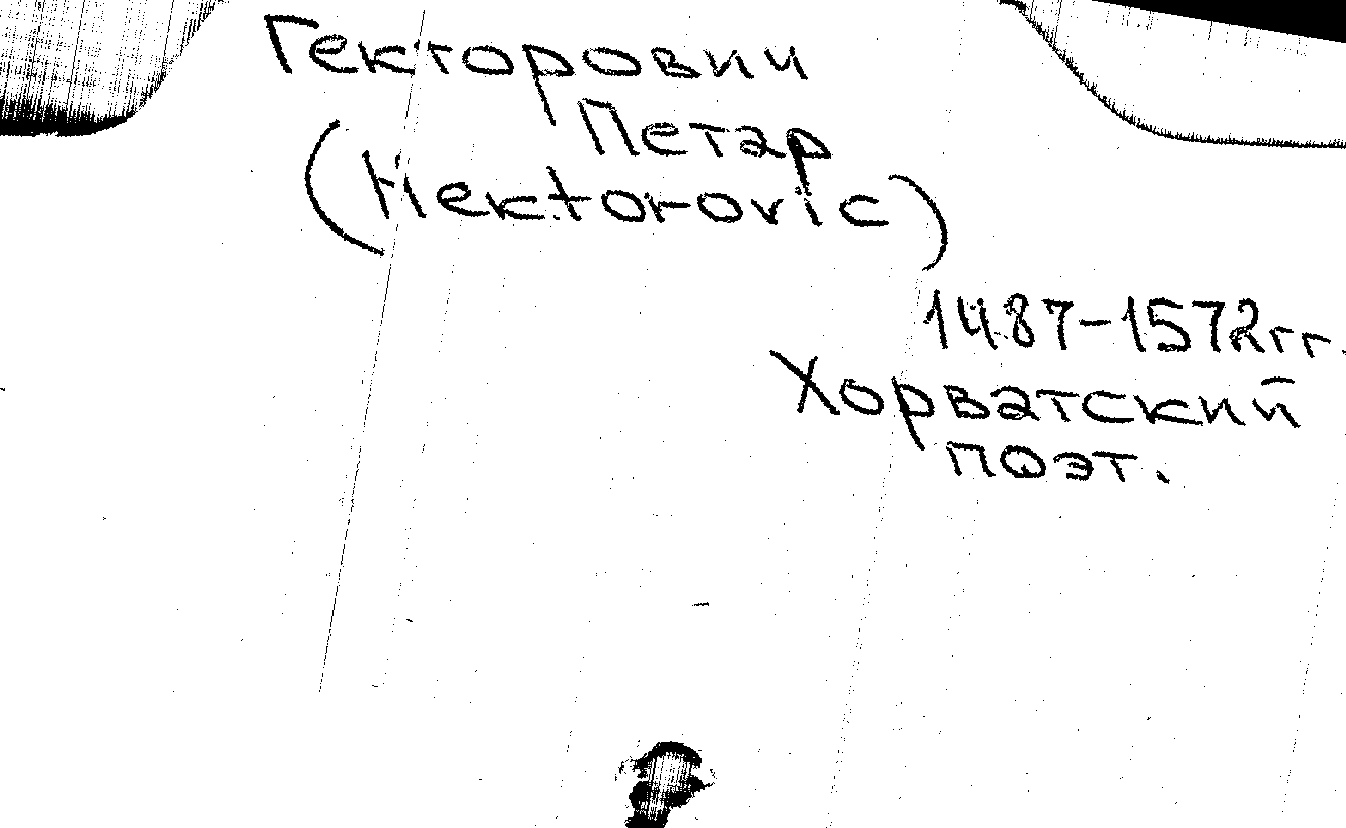 Гекторович
Петар
(Hektorovic)
1487-1572гг.
Хорватский
поэт.